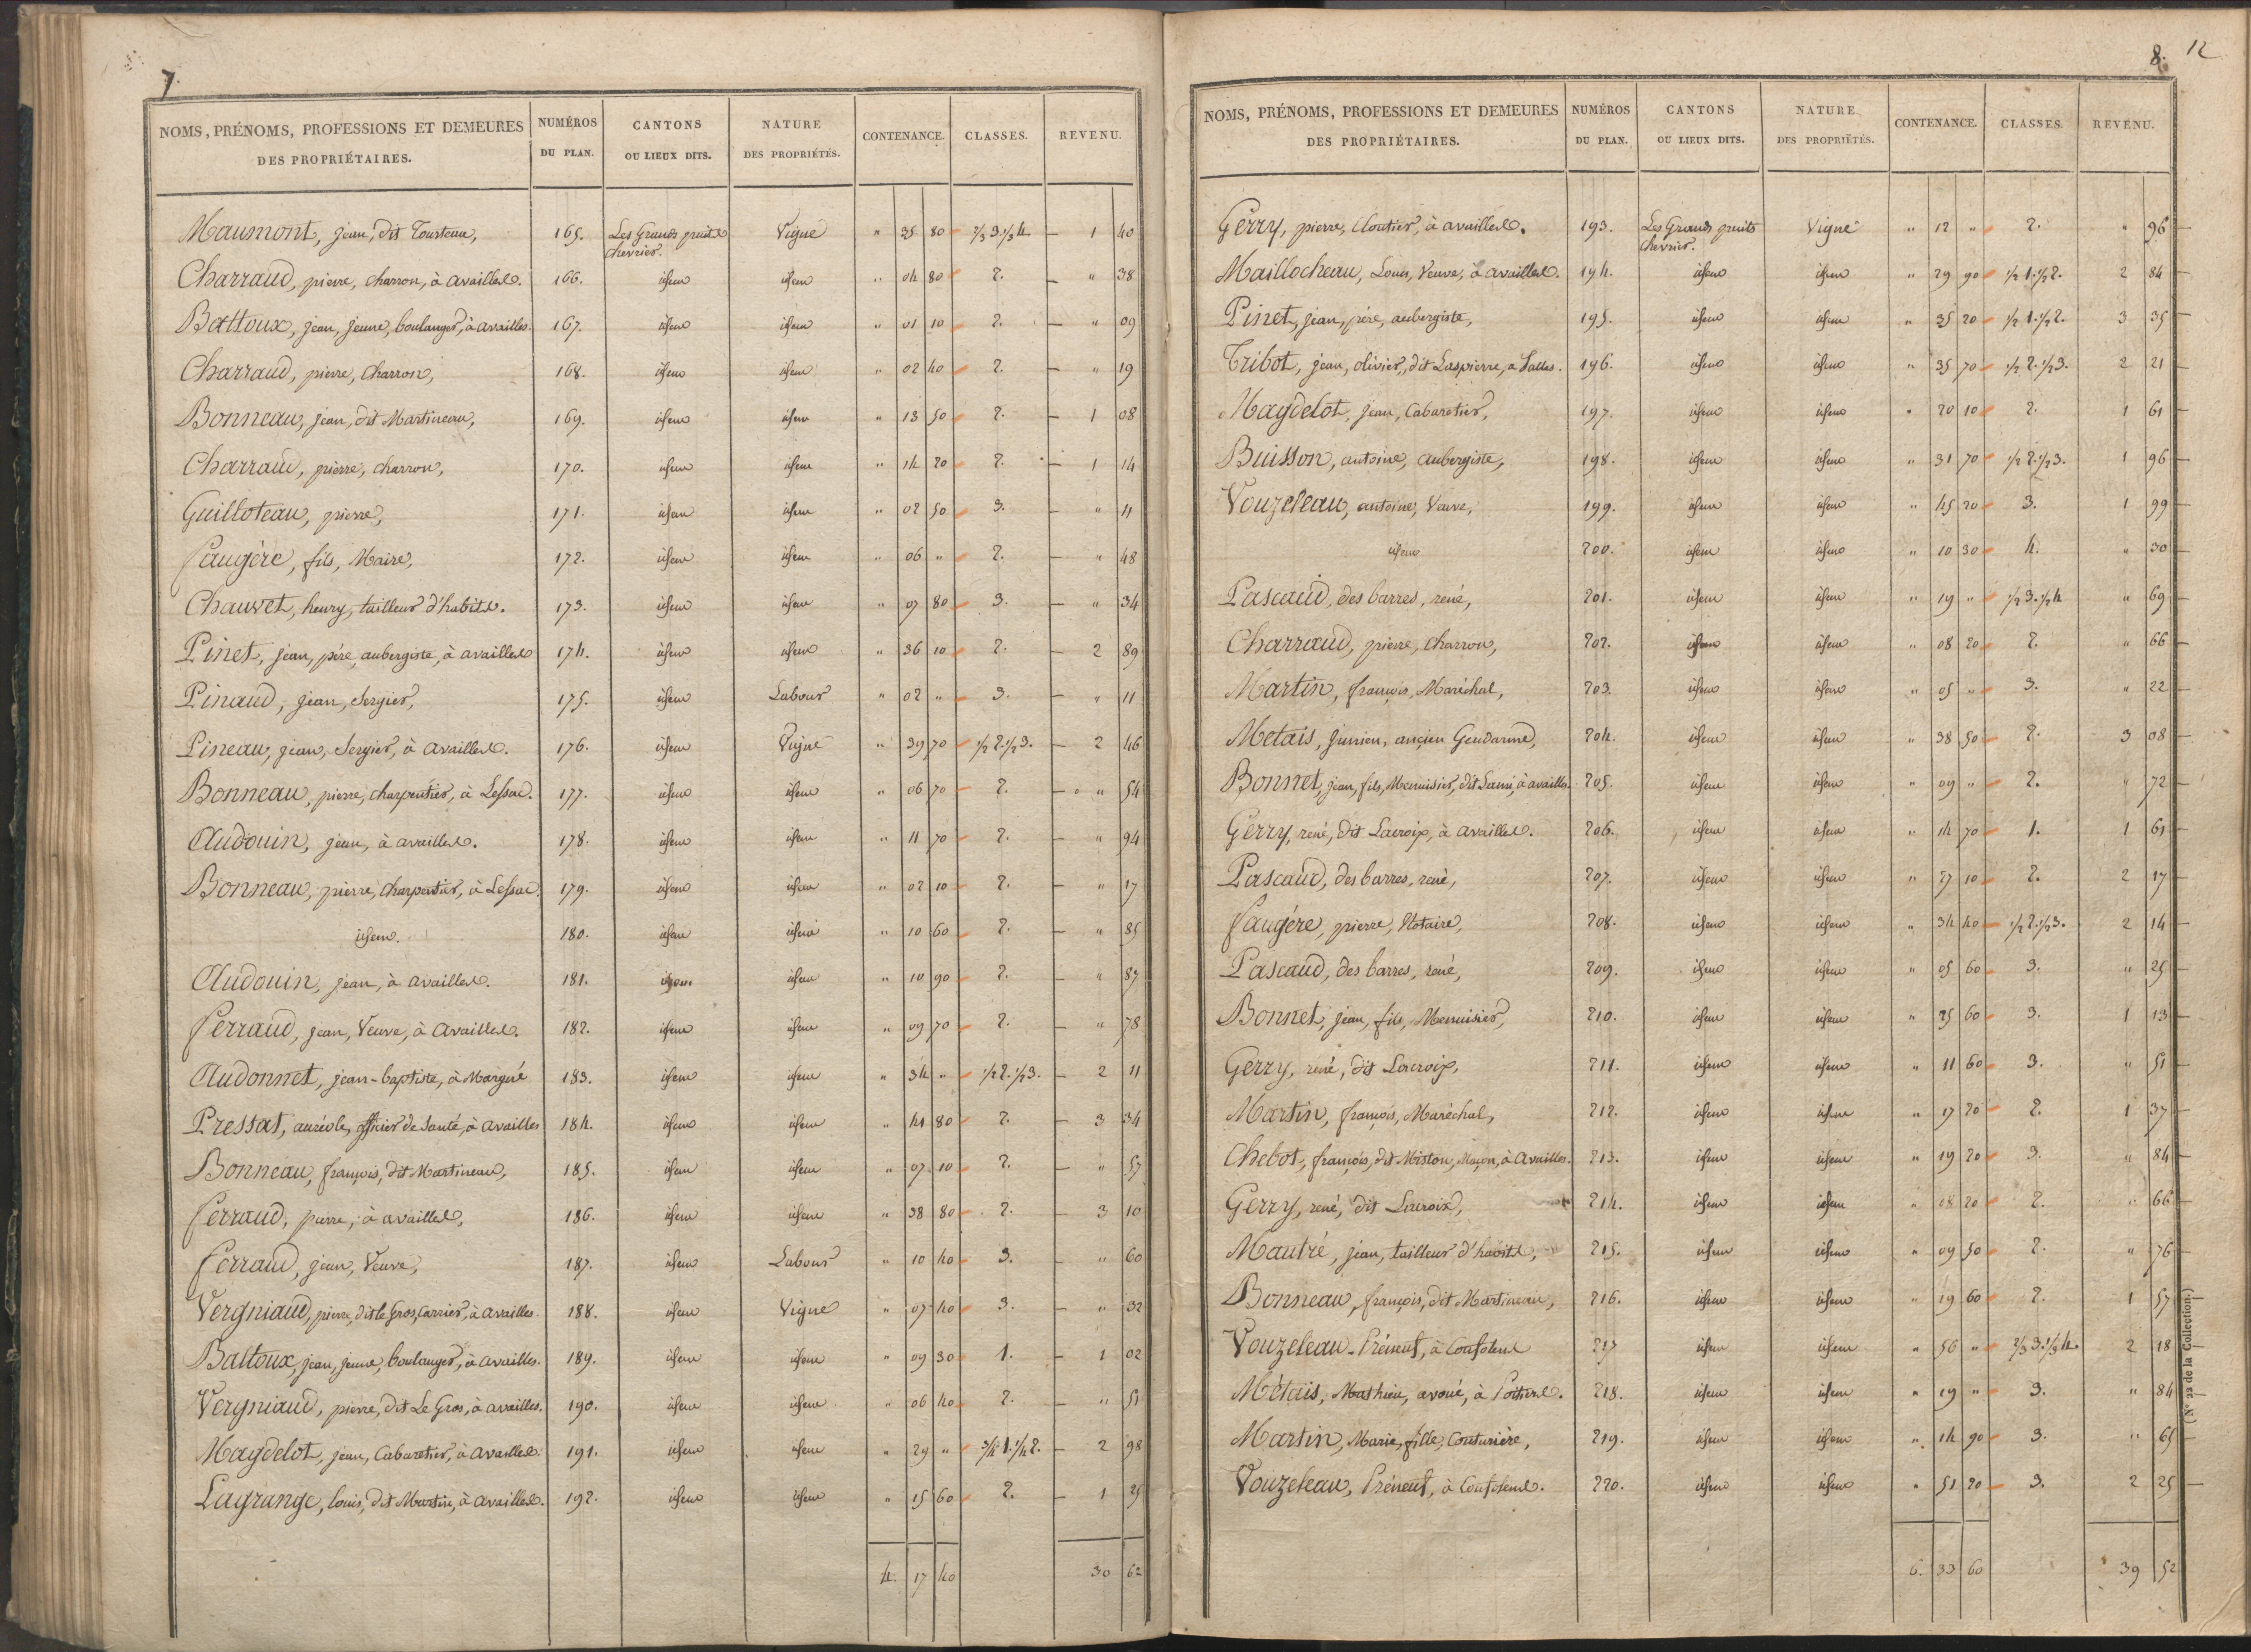 7.
NOMS, PRÉNOMS, PROFESSIONS ET DEMEURES DES PROPRIÉTAIRES. | NUMÉROS DU PLAN. | CANTONS OU LIEUX DITS. | NATURE DES PROPRIÉTÉS. | CONTENANCE. | CLASSES. | REVENU.
Maumont, jean, dit Tourteau, 165. Les Grands puits chevrier. Vigne " 35 80 2/3 3. 1/3 4. 1 40
Charraud, pierre, charron, à availles. 166. idem idem " 04 80 2. " 38
Battoux, jean, jeune, boulanger, à availles. 167. idem idem " 01 10 2. " 09
Charraud, pierre, charron, 168. idem idem " 02 40 2. " 19
Bonneau, jean, dit Martineau, 169. idem idem " 13 50 2. 1 08
Charraud, pierre, charron, 170. idem idem " 14 20 2. 1 14
Guilloteau, pierre, 171. idem idem " 02 50 3. " 11
faugère, fils, Maire, 172. idem idem " 06 " 2. " 48
Chauvet, henry, tailleur d'habits. 173. idem idem " 07 80 3. " 34
Pinet, jean, père, aubergiste, à availles 174. idem idem " 36 10 2. 2 89
Pinaud, jean, Sergier, 175. idem Labour " 02 " 3. " 11
Pineau, jean, Sergier, à availles. 176. idem Vigne " 39 70 1/2 2. 1/2 3. 2 46
Bonneau, pierre, charpentier, à Lessac. 177. idem idem " 06 70 2. " 54
Audouin, jean, à availles. 178. idem idem " 11 70 2. " 94
Bonneau, pierre, charpentier, à Lessac. 179. idem idem " 02 10 2. " 17
idem. 180. idem idem " 10 60 2. " 85
Audouin, jean, à availles. 181. idem idem " 10 90 2. " 87
ferraud, jean, Veuve, à availles. 182. idem idem " 09 70 2. " 78
Audonnet, jean-baptiste, à Margné 183. idem idem " 34 " 1/2 2. 1/2 3. 2 11
Pressat, auréole, officier de Santé, à availles 184. idem idem " 41 80 2. 3 34
Bonneau, françois, dit Martineau, 185. idem idem " 07 10 2. " 57
ferraud, pierre, à availles, 186. idem idem " 38 80 2. 3 10
ferraud, jean, Veuve, 187. idem Labour " 10 40 3. " 60
Vergniaud, pierre, dit le Gros, Carrier, à availles. 188. idem Vigne " 07 40 3. " 32
Battoux, jean, jeune, boulanger, à availles. 189. idem idem " 09 30 1. 1 02
Vergniaud, pierre, dit Le Gros, à availles. 190. idem idem " 06 40 2. " 51
Magdelot, jean, Cabaretier, à availles. 191. idem idem " 29 " 3/4 1. 1/4 2. 2 98
Lagrange, louis, dit Martin, à availles. 192. idem idem " 15 60 2. 1 25
4. 17 40 30 62
8. 12
NOMS, PRÉNOMS, PROFESSIONS ET DEMEURES DES PROPRIÉTAIRES. | NUMÉROS DU PLAN. | CANTONS OU LIEUX DITS. | NATURE DES PROPRIÉTÉS. | CONTENANCE. | CLASSES. | REVENU.
Gerry, pierre, Cloutier, à availles. 193. Les Grands puits chevrier. Vigne " 12 " 2. " 96
Maillocheau, Louis, Veuve, à availles. 194. idem idem " 29 90 1/2 1. 1/2 2. 2 84
Pinet, jean, père, aubergiste, 195. idem idem " 35 20 1/2 1. 1/2 2. 3 35
Tribot, jean, olivier, dit Laspierre, a Salles. 196. idem idem " 35 70 1/2 2. 1/2 3. 2 21
Magdelot, jean, Cabaretier, 197. idem idem " 20 10 2. 1 61
Buisson, antoine, aubergiste, 198. idem idem " 31 70 1/2 2. 1/2 3. 1 96
Vouzeleau, antoine, Veuve, 199. idem idem " 45 20 3. 1 99
idem 200. idem idem " 10 30 4. " 30
Pascaud, des barres, rené, 201. idem idem " 19 " 1/2 3. 1/2 4 " 69
Charraud, pierre, charron, 202. idem idem " 08 20 2. " 66
Martin, françois, Maréchal, 203. idem idem " 05 " 3. " 22
Metais, junien, ancien Gendarme, 204. idem idem " 38 50 2. 3 08
Bonnet, jean, fils, Menuisier, dit Sami, à availles. 205. idem idem " 09 " 2. " 72
Gerry, rené, dit Lacroix, à availles. 206. idem idem " 14 70 1. 1 61
Pascaud, des barres, rené, 207. idem idem " 27 10 2. 2 17
faugére, pierre, Notaire, 208. idem idem " 34 40 1/2 2. 1/2 3. 2 14
Pascaud, des barres, rené, 209. idem idem " 05 60 3. " 25
Bonnet, jean, fils, Menuisier, 210. idem idem " 25 60 3. 1 13
Gerry, rené, dit Lacroix, 211. idem idem " 11 60 3. " 51
Martin, françois, Maréchal, 212. idem idem " 17 20 2. 1 37
Chebot, françois, dit Miston, Maçon, à availles. 213. idem idem " 19 20 3. " 84
Gerry, rené, dit Lacroix, 214. idem idem " 08 20 2. " 66
Mautré, jean, tailleur d'habits, 215. idem idem " 09 50 2. " 76
Bonneau, françois, dit Martineau, 216. idem idem " 19 60 2. 1 57
Vouzeleau-Préneuf, à Confolens 217 idem idem " 56 " 2/3 3. 1/3 4. 2 18
Métais, Mathieu, avoué, à Poitiers. 218. idem idem " 19 " 3. " 84
Martin, Marie, fille, Couturière, 219. idem idem " 14 90 3. " 65
Vouzeleau, Préneuf, à Confolens. 220. idem idem " 51 20 3. 2 25
6. 33 60 39 52
(N° 22 de la Collection.)